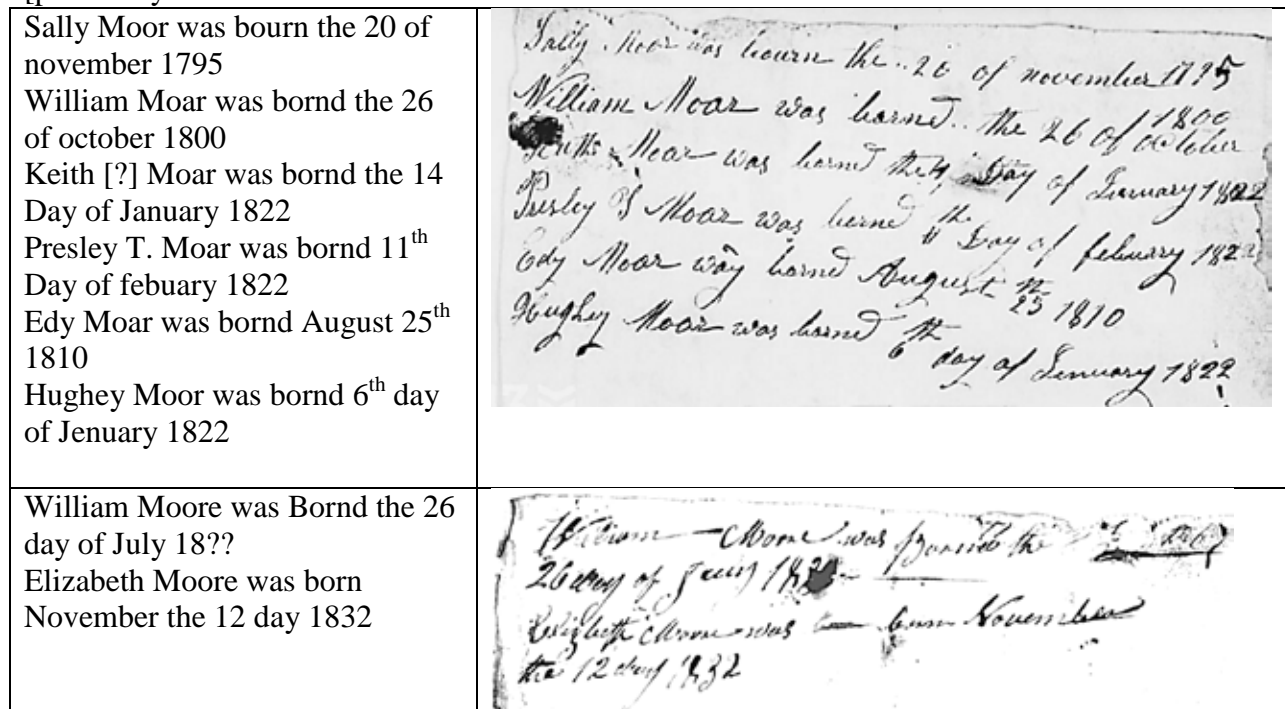 Sally Moor was bourn the 20 of
november 1795
William Moar was bornd the 26
of october 1800
Keith [?] Moar was bornd the 14
Day of January 1822
Presley T. Moar was bornd 11th
Day of febuary 1822
Edy Moar was bornd August 25th
1810
Hughey Moor was bornd 6th day
of Jenuary 1822
Sally Moor was bourn the 20 of november 1795
William Moar was bornd the 26 of october 1800
Moar was bornd the Day of Jenuary 1822
Presley Moar was bornd 11th Day of febuary 182
Edy Moar way bornd August 25th 1810
Hughey Moar was bornd 6th day of Jenuary 1822
William Moore was Bornd the 26
day of July 18??
Elizabeth Moore was born
November the 12 day 1832
William Moore was Bornd the
26 day of 18
Elizbeth Moore was born November
the 12 day 1832